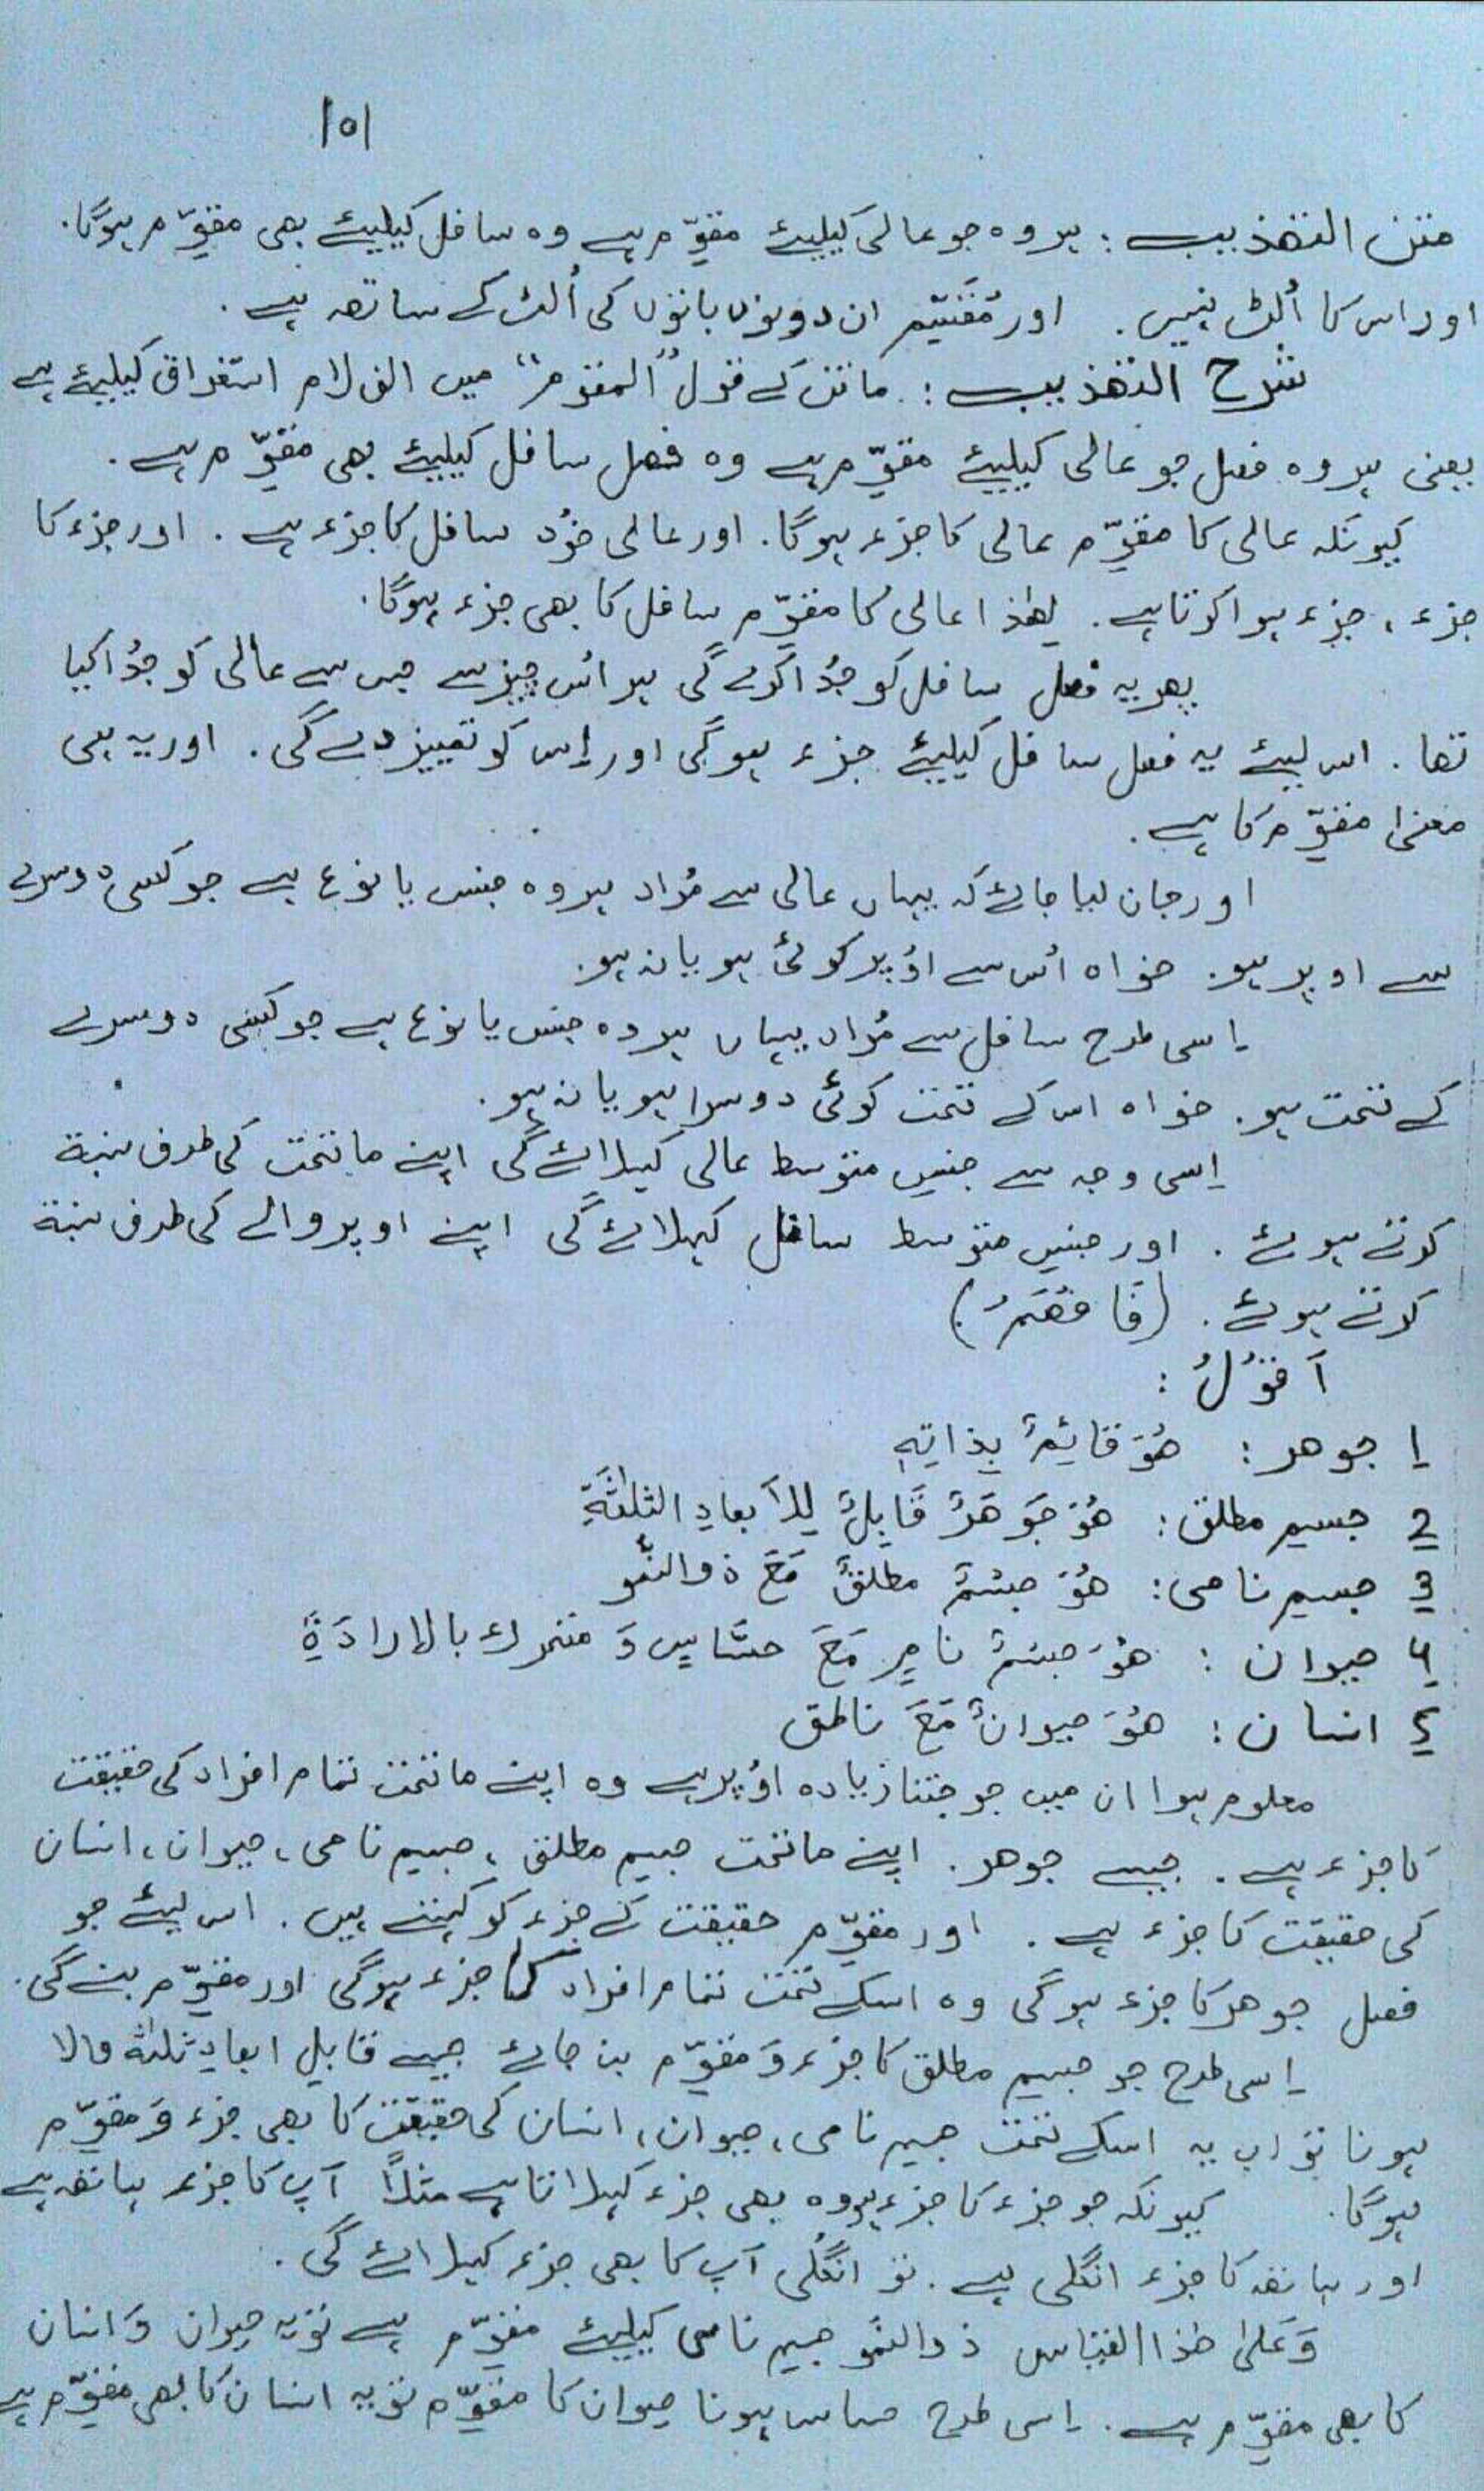 101
متن التهذيب : ہر وہ جو عالی کیلیئے مقوّم ہے وہ سافل کیلیئے بھی مقوّم ہوگا.
اور اس کا اُلٹ نہیں. اور مُقَسِّم ان دونوں باتوں کی اُلٹ کے ساتھ ہے.
شرح التهذيب : ماتن کے قول "المقوم" میں الف لام استغراق کیلیئے ہے
یعنی ہر وہ فصل جو عالی کیلیئے مقوِّم ہے وہ فصل سافل کیلیئے بھی مقوّم ہے.
کیونکہ عالی کا مقوِّم عالی کا جزء ہوگا. اور عالی خود سافل کا جزء ہے. اور جزء کا
جزء، جزء ہوا کرتا ہے. لھٰذا عالی کا مقوِّم سافل کا بھی جزء ہوگا.
پھر یہ فصل سافل کو جُدا کرے گی ہر اُس چیز سے جس سے عالی کو جُدا کیا
تھا. اس لیئے یہ فصل سافل کیلیئے جزء ہوگی اور اِس کو تمییز دے گی. اور یہ ہی
معنیٰ مقوِّم کا ہے.
اور جان لیا جائے کہ یہاں عالی سے مُراد ہر وہ جنس یا نوع ہے جو کسی دوسرے
سے اوپر ہو. خواہ اُس سے اوُپر کوئی ہو یا نہ ہو.
اِسی طرح سافل سے مُراد یہاں ہر وہ جنس یا نوع ہے جو کسی دوسرے
کے تحت ہو. خواہ اس کے تحت کوئی دوسرا ہو یا نہ ہو.
اِسی وجہ سے جنسِ متوسط عالی کہلائے گی اپنے ماتحت کی طرف نسبة
کرتے ہوئے. اور جنسِ متوسط سافل کہلائے گی اپنے اوپر والے کی طرف نسبة
کرتے ہوئے. (فَافْهَمْ)
اَقُوْلُ :
1 جوهر : هُوَ قَائِمٌ بِذَاتِهٖ
2 جسمِ مطلق : هُوَ جَوْهَرٌ قَابِلٌ لِلْاَبعادِ الثلٰثَةِ
3 جسمِ نامی : هُوَ جِسْمٌ مطلقٌ مَعَ ذوالنُّمو
4 حیوان : هُوَ جِسْمٌ نامٍ مَعَ حسَّاسٍ وَ متحرك بالارادَةِ
5 انسان : هُوَ حیوانٌ مَعَ ناطق
معلوم ہوا ان میں جو جتنا زیادہ اوُپر ہے وہ اپنے ماتحت تمام افراد کی حقیقت
کا جزء ہے. جیسے جوھر. اپنے ماتحت جسمِ مطلق، جسمِ نامی، حیوان، انسان
کی حقیقت کا جزء ہے. اور مقوِّم حقیقت کے جزء کو کہتے ہیں. اس لیئے جو
فصل جوھر کا جزء ہوگی وہ اسکے تحت تمام افراد کا جزء ہوگی اور مقوِّم بنے گی.
اِسی طرح جو جسمِ مطلق کا جزء وَ مقوِّم بن جائے جیسے قابلِ ابعادِ ثلٰثہ والا
ہونا تو اب یہ اسکے تحت جسمِ نامی، حیوان، انسان کی حقیقت کا بھی جزء وَ مقوِّم
ہوگا. کیونکہ جو جزء کا جزء ہو وہ بھی جزء کہلاتا ہے مثلاً آپ کا جزء ہاتھ ہے
اور ہاتھ کا جزء انگلی ہے. تو انگلی آپ کا بھی جزء کہلائے گی.
وَعَلیٰ ھٰذا القیاس ذوالنُّمو جسمِ نامی کیلیئے مقوِّم ہے تو یہ حیوان وَ انسان
کا بھی مقوِّم ہے. اِسی طرح حساس ہونا حیوان کا مقوِّم تو یہ انسان کا بھی مقوِّم ہے